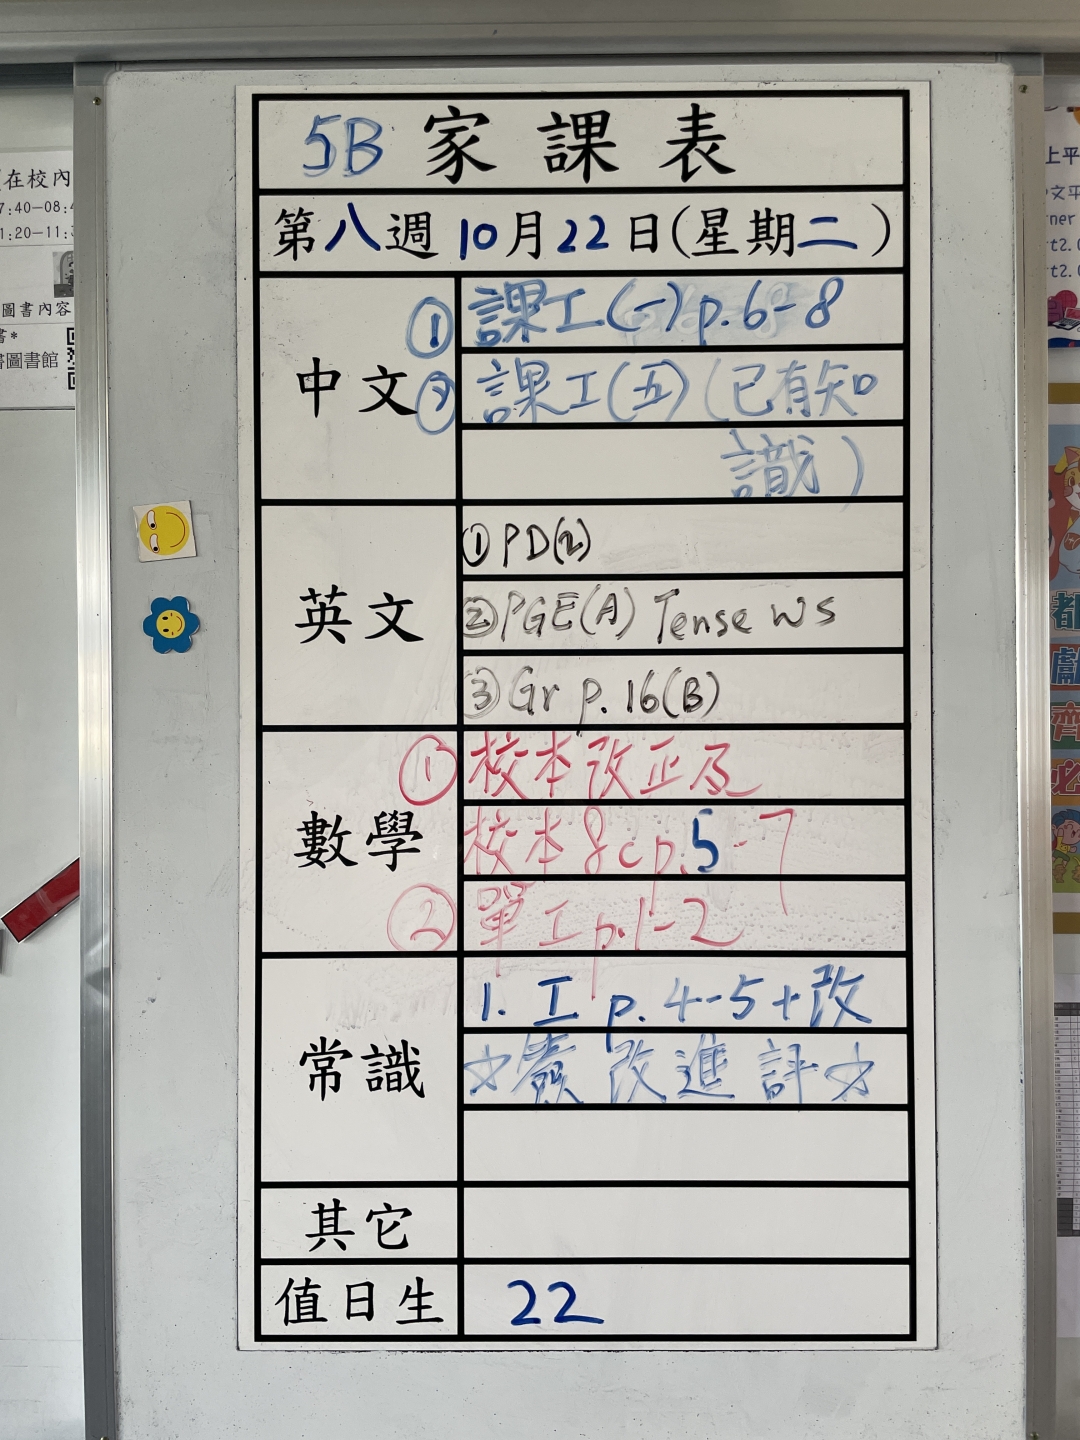 5B 家課表
第八週 10月22日(星期二)
中文
① 課工(一) p.6-8
② 課工(五) (已有知
識)
英文
① PD(2)
② PGE(A) Tense WS
③ Gr p.16(B)
數學
① 校本改正及
校本8c p.5-7
② 單工 p.1-2
常識
1. 工 p.4-5+改
☆ 改進評☆
其它
值日生 22
在校內
7:40-08:4
1:20-11:3
圖書內容
書*
書圖書館
上平
中文平
rner
rt2.0
rt2.0
都
獻
齊
必